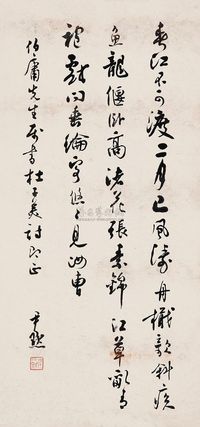 春江不可渡二月已風濤舟楫欹斜疾
魚龍偃臥高渚花張素錦汀草亂青
袍戲問垂綸客悠々見汝曹
伯庸先生屬書杜子美詩即正
尹默